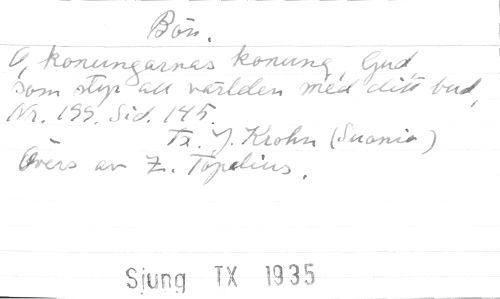 Bön.
O, konungarnas konung, Gud,
som styr all världen med ditt bud,
Nr. 199. Sid. 145.
Tx. J. Krohn (Suonio)
Övers av Z. Topelius.
Sjung TX 1935